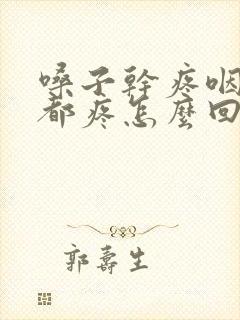 嗓子幹疼咽
都疼怎麼回
郭壽生